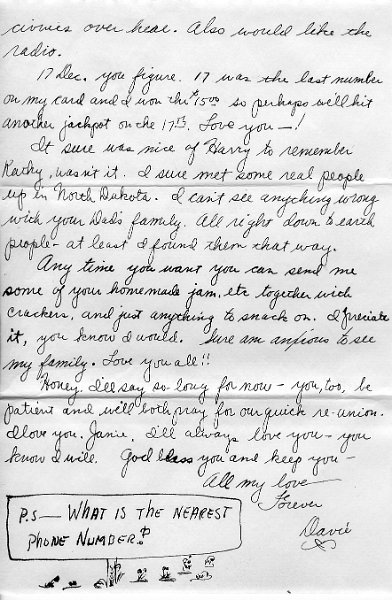 civvies over hear. Also would like the
radio.
17 Dec. you figure. 17 was the last number
on my card and I won the $15.00 so perhaps we'll hit
another jackpot on the 17th. Love you—!
It sure was nice of Harry to remember
Kathy, wasn't it. I sure met some real people
up in North Dakota. I can't see anything wrong
with your Dad's family. All right down to earth
people - at least I found them that way.
Any time you want you can send me
some of your homemade jam, etc together with
crackers, and just anything to snack on. I'd preciate
it, you know I would. Sure am anxious to see
my family. Love you all!!
Honey. I'll say so long for now - you, too, be
patient and we'll both pray for our quick re-union.
I love you, Janie. I'll always love you - you
know I will. God bless you and keep you -
All my love
Forever
Davie
P.S— WHAT IS THE NEAREST
PHONE NUMBER?